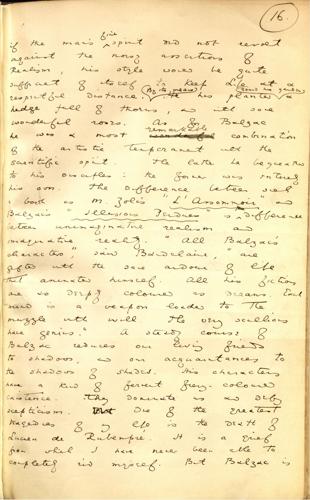 16.
if the man's fine spirit did not revolt
against the noisy assertions of
Realism, his style would be quite
sufficient of itself to keep life at a
respectful distance. By its means he has planted a
hedge full of thorns, and with
wonderful roses. As for Balzac
he was a most remarkable combination
of the artistic temperament with the
scientific spirit. The latter he bequeathed
to his disciples: the former was entirely
his own. The difference between such
a book as M. Zola's "L'Assommoir" and
Balzac's "Illusions Perdues" is the difference
between unimaginative realism and
imaginative reality. "All Balzac's
characters," said Baudelaire, "are
gifted with the same ardour of life
that animated himself. All his fictions
are as deeply coloured as dreams. Each
mind is a weapon loaded to the
muzzle with will. The very scullions
have genius." A steady course of
Balzac reduces our living friends
to shadows, and our acquaintances to
the shadows of shades. His characters
have a kind of fervent fiery-coloured
existence. They dominate us and defy
scepticism. One of the greatest
tragedies of my life is the death of
Lucien de Rubempré. It is a grief
from which I have never been able to
completely rid myself. But Balzac is